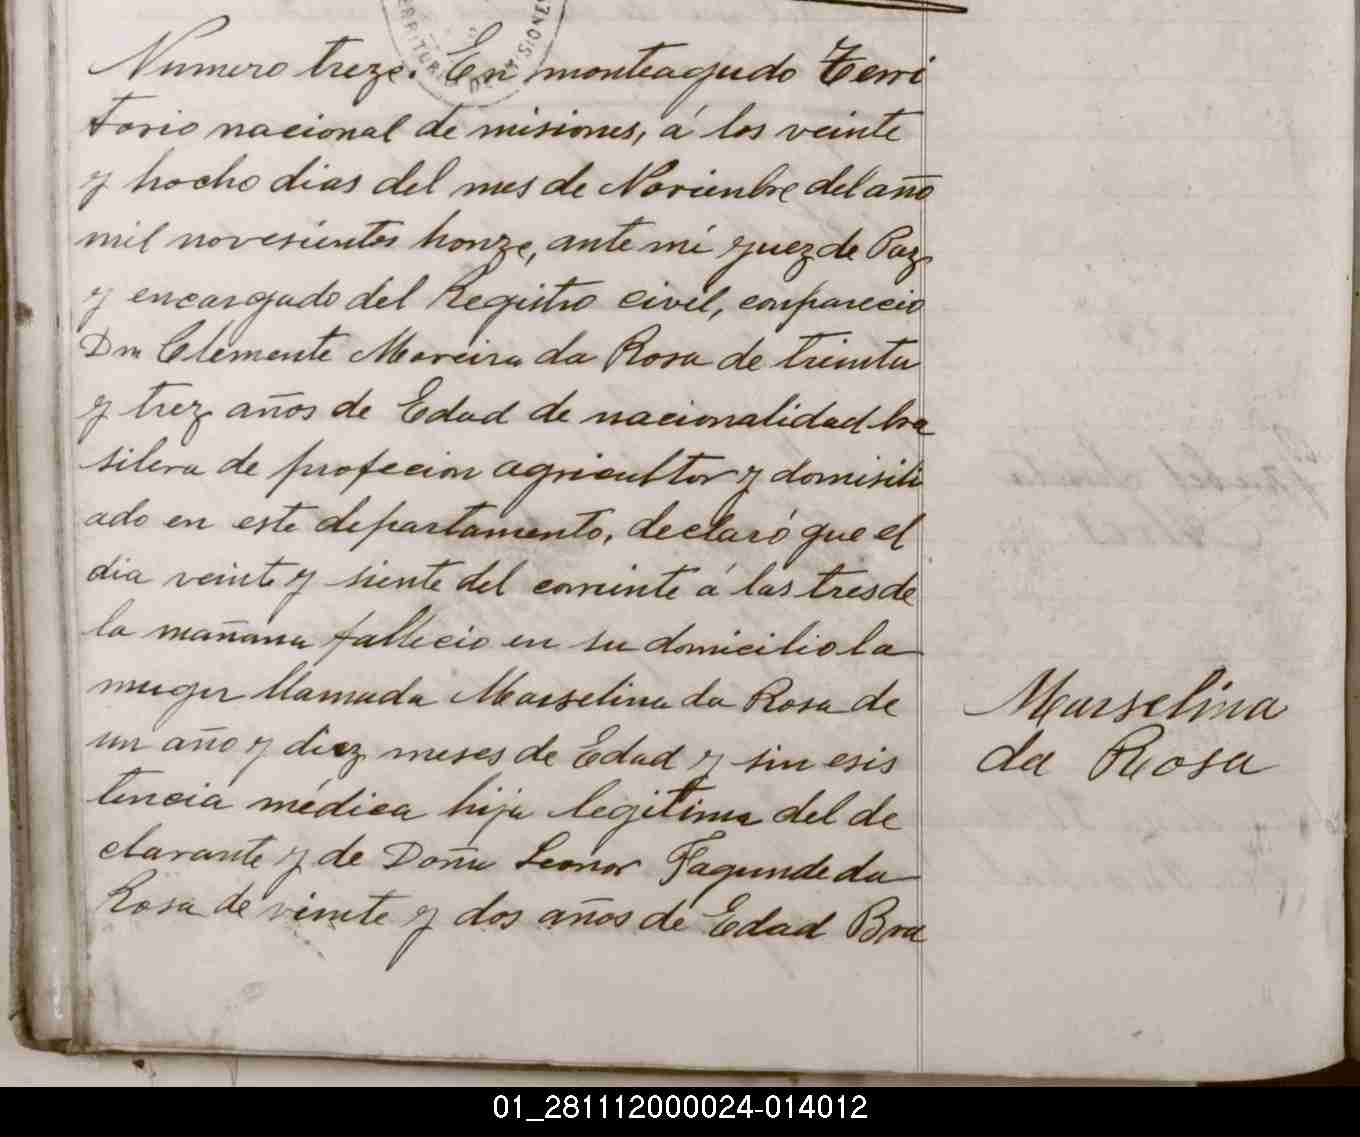 TERRITORIO DE MISIONES
Numero treze. En monteagudo Terri
torio nacional de misiones, á los veinte
y hocho dias del mes de Novienbre del año
mil novesientos honze, ante mi guez de Paz
y encargado del Registro civel, conparecio
Dn Clemente Moreira da Rosa de trinta
y trez años de Edad de nacionalidad bra
silera de profecion agricultor y domisili
ado en este departamento, declaró que el
dia veinte y siente del corriente á las tres de
la mañana fallecio en su domicilio la
muger llamada Marselina da Rosa de
un año y diez meses de Edad y sin esis
tencia médica hija legitima del de
clarante y de Doña Leonor Fagunde da
Rosa de vinte y dos años de Edad Bra
Marselina
da Rosa
01_281112000024-014012